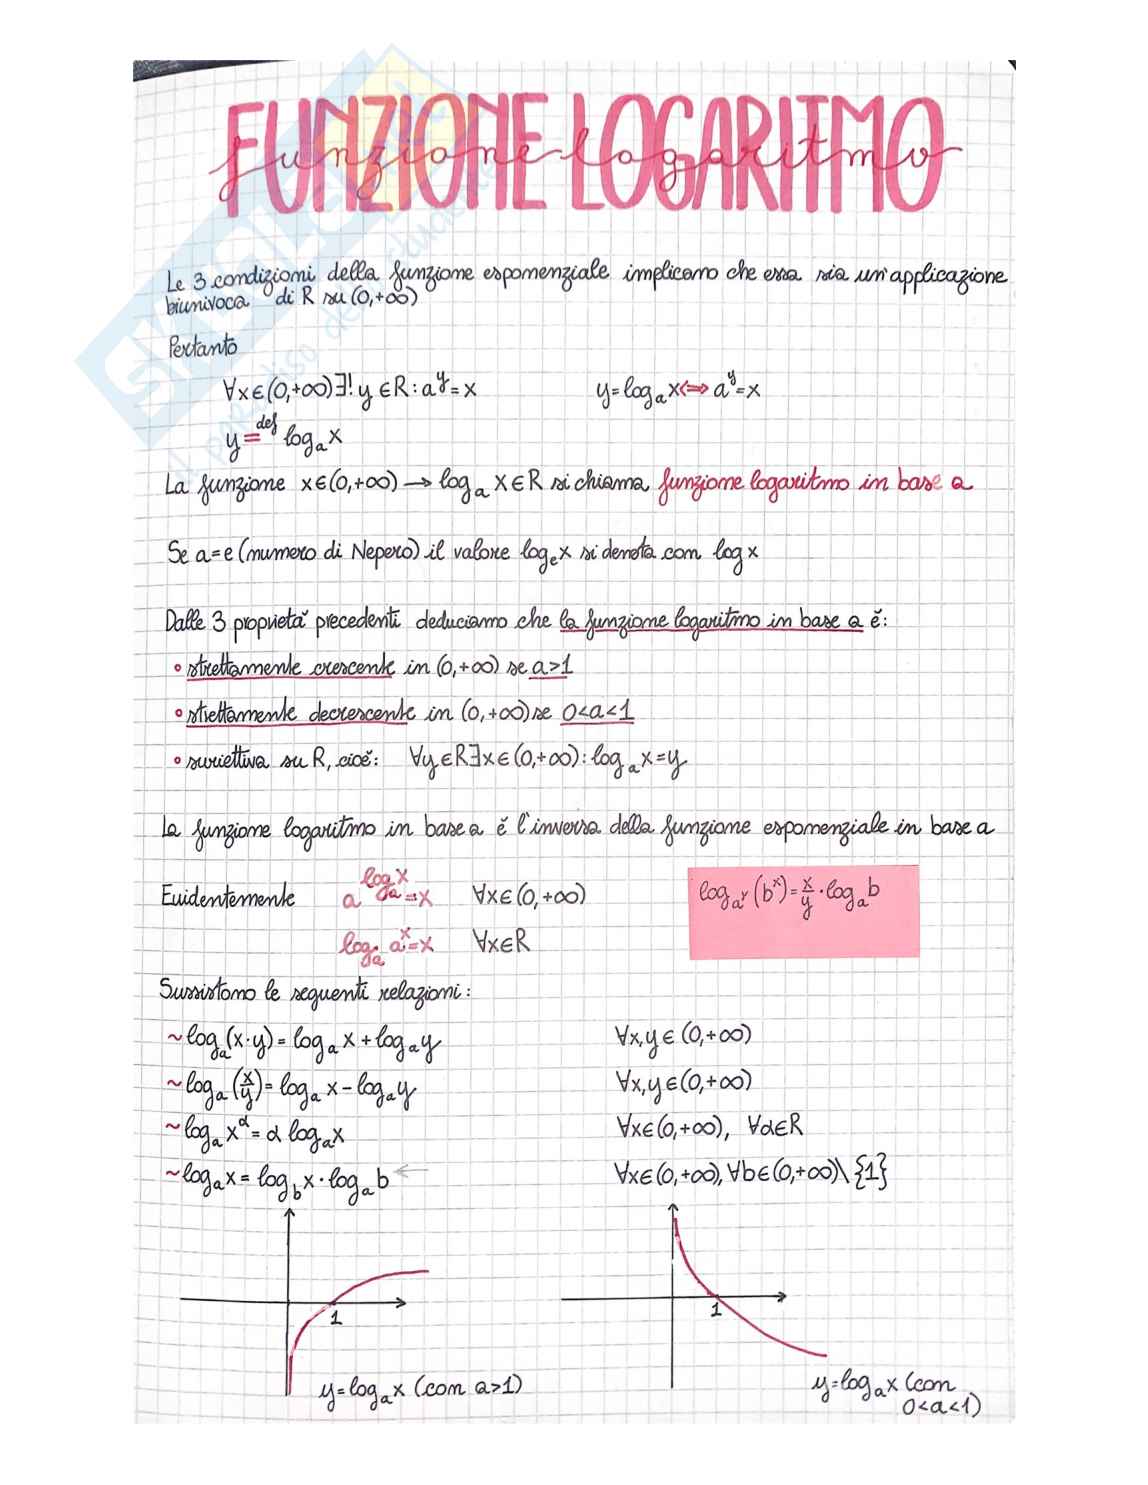 FUNZIONE LOGARITMO
funzione logaritmo
SKUOLA
il paradiso dello studente
Le 3 condizioni della funzione esponenziale implicano che essa sia un'applicazione
biunivoca di R su (0,+∞)
Pertanto
∀x∈(0,+∞)∃! y∈R : a^y = x
y = log_a x ⟺ a^y = x
y =^def log_a x
La funzione x∈(0,+∞) → log_a x∈R si chiama funzione logaritmo in base a
Se a=e (numero di Nepero) il valore log_e x si denota con log x
Dalle 3 proprietà precedenti deduciamo che la funzione logaritmo in base a è:
• strettamente crescente in (0,+∞) se a>1
• strettamente decrescente in (0,+∞) se 0<a<1
• suriettiva su R, cioè: ∀y∈R∃x∈(0,+∞): log_a x=y
La funzione logaritmo in base a è l'inversa della funzione esponenziale in base a
Evidentemente a^(log_a x) = x ∀x∈(0,+∞)
log_a a^x = x ∀x∈R
log_(a^y) (b^x) = x/y · log_a b
Sussistono le seguenti relazioni:
~ log_a (x·y) = log_a x + log_a y ∀x,y∈(0,+∞)
~ log_a (x/y) = log_a x − log_a y ∀x,y∈(0,+∞)
~ log_a x^α = α log_a x ∀x∈(0,+∞), ∀α∈R
~ log_a x = log_b x · log_a b ← ∀x∈(0,+∞), ∀b∈(0,+∞)\{1}
1
y = log_a x (con a>1)
1
y = log_a x (con
0<a<1)